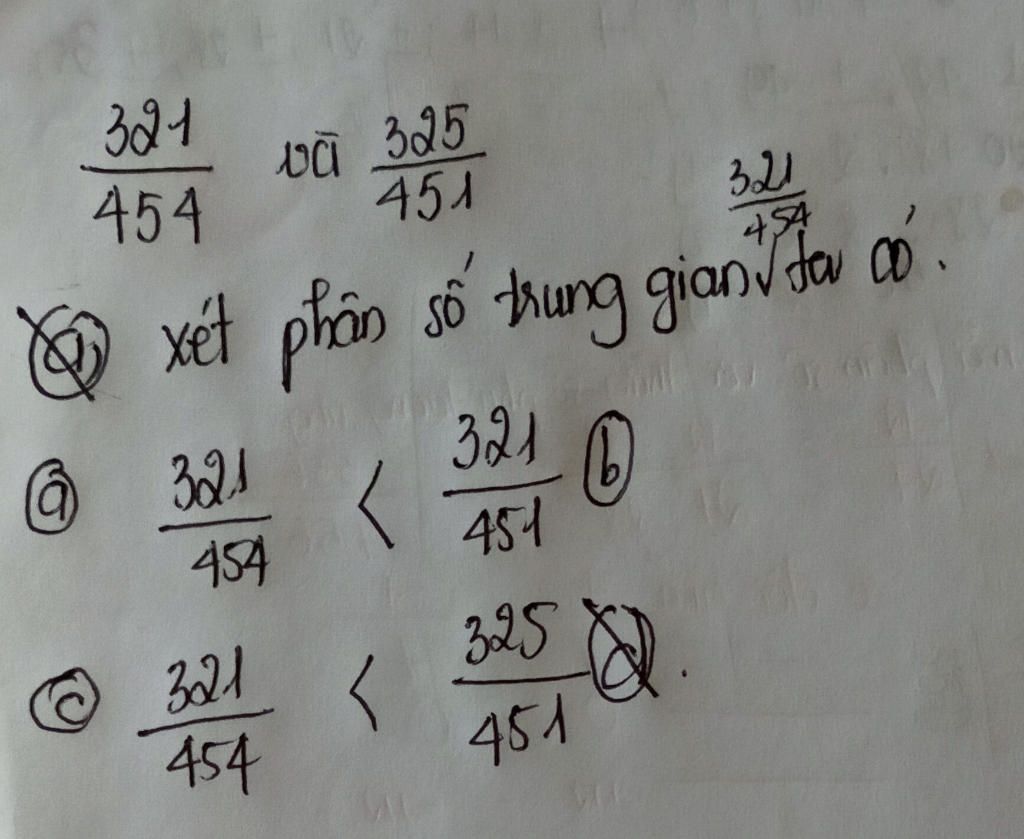 321/454 và 325/451
321/454
xét phân số trung gian √ ta có.
a 321/454 < 321/451 b
c 321/454 < 325/451 .